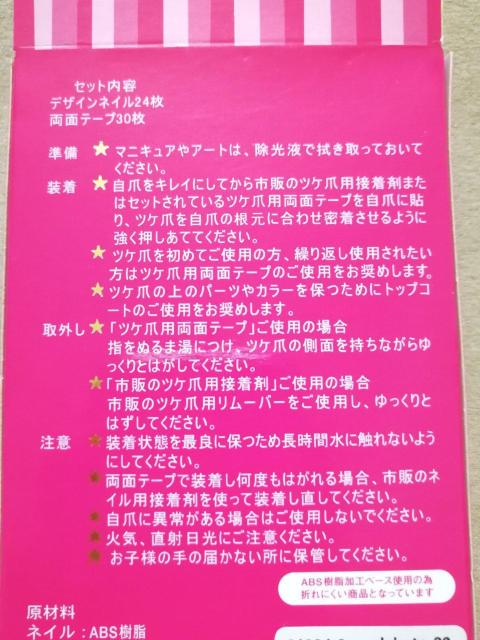 セット内容
デザインネイル24枚
両面テープ30枚
準備 ★ マニキュアやアートは、除光液で拭き取っておいて
ください。
装着 ★ 自爪をキレイにしてから市販のツケ爪用接着剤また
はセットされているツケ爪用両面テープを自爪に貼
り、ツケ爪を自爪の根元に合わせ密着させるように
強く押しあててください。
★ ツケ爪を初めてご使用の方、繰り返し使用されたい
方はツケ爪用両面テープのご使用をお奨めします。
★ ツケ爪の上のパーツやカラーを保つためにトップコ
ートのご使用をお奨めします。
取外し ★ 「ツケ爪用両面テープ」ご使用の場合
指をぬるま湯につけ、ツケ爪の側面を持ちながらゆ
っくりとはがしてください。
★ 「市販のツケ爪用接着剤」ご使用の場合
市販のツケ爪用リムーバーをご使用し、ゆっくりと
はずしてください。
注意 ★ 装着状態を最良に保つため長時間水に触れないよう
にしてください。
★ 両面テープで装着し何度もはがれる場合、市販のネ
イル用接着剤を使って装着し直してください。
★ 自爪に異常がある場合はご使用しないでください。
★ 火気、直射日光にご注意ください。
★ お子様の手の届かない所に保管してください。
ABS樹脂加工ベース使用の為
折れにくい商品となっています
原材料
ネイル：ABS樹脂